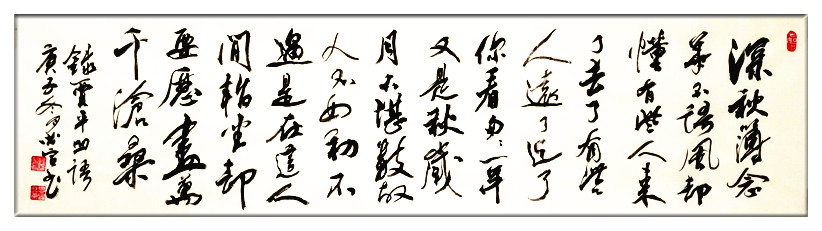 深秋薄念
葉不語風却
懂有些人来
了去了有些
人遠了近了
你看 一年
又是秋歲
月不堪數故
人不如初不
過是在這人
間稍坐却
要歷盡萬
千滄桑
錄賈平凹語
庚子冬月 書